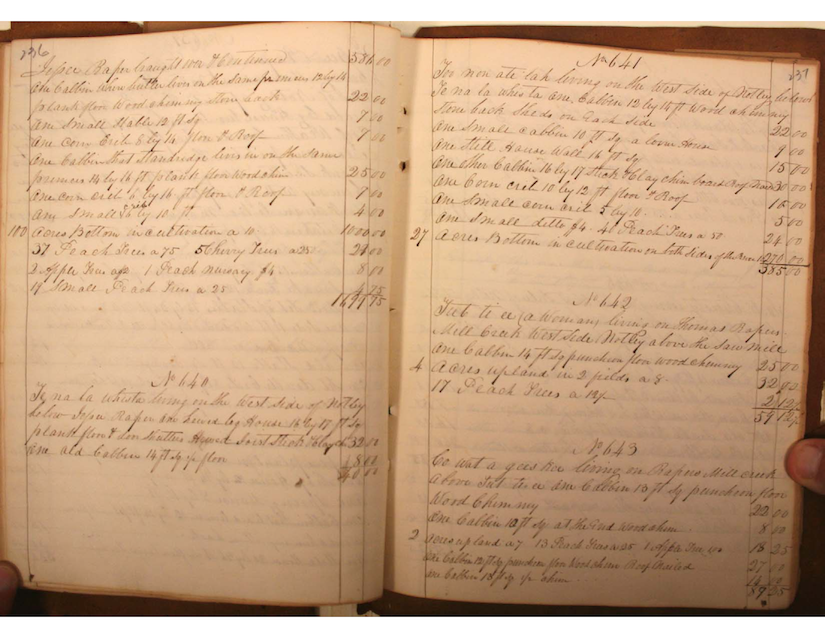 236
Jesse Raper braught over & Continued 581 00
One Cabbin where butler lives on the Same premises 12 by 14
plank flor Wood chimny Stone back 22 00
One Small Stable 12 ft Sq 7 00
One corn Crib 8 by 14 flor & Roof 7 00
One Cabbin that Standredge lives in on the Same
premises 14 by 16 ft plank flor Wood chim 25 00
One corn crib 6 by 16 ft flor & Roof 7 00
One Small crib by 10 ft 4 00
100 Acres Bottom in cultivation a 10 1000 00
37 Peach Trees a 75 5 Cherry Trees a 25
2 Apple Trees 1 Peach Nursary $4 8 00
19 Small Peach Trees a 25 4 75
No 640
Te na la whista living on the West Side of Notley
below Jesse Raper one hewed log House 16 by 17 ft Sq
plank flor & Hewed Joist Stick & Clay ch 32 00
One old Cabbin 14 ft Sq flor 8 00
40 00
No 641
237
living on the West Side of Notley below
Te na la whis ta One Cabbin 12 by 14 ft Wood chimny
Stone back Sheds on Each Side 22 00
One Small Cabbin 10 ft Sq a loom House 9 00
One Still House Wall 16 ft Sq 15 00
One other Cabbin 16 by 17 Stick & Clay chim board Roof 30 00
One Corn crib 10 by 12 ft flor & Roof 10 00
One Small corn crib 5 by 10 5 00
One Small ditto $4. 40 Peach Trees a 50 24 00
27 Acres Bottom in cultivation on both Sides of the River 270 00
385 00
No 642
Tut ti ee (a Woman) living on Thomas Rapers
Mill Creek West Side Notley above the Saw Mill
One Cabbin 14 ft Sq puncheon flor wood chimny 25 00
4 Acres upland in 2 fields a 8 32 00
17 Peach Trees a 12½ 2 12½
59 12½
No 643
living on Rapers Mill creek
above Tut ti ee one Cabbin 13 ft Sq puncheon flor
Wood Chimny 22 00
One Cabbin 12 ft Sq at the End Wood chim 8 00
2 acres up land a 7 13 Peach Trees a 25 1 Apple Tree 18 25
one Cabbin 12 ft Sq puncheon flor Wood chim Roof 27 00
one Cabbin 13 ft Sq chim 14 00
89 25